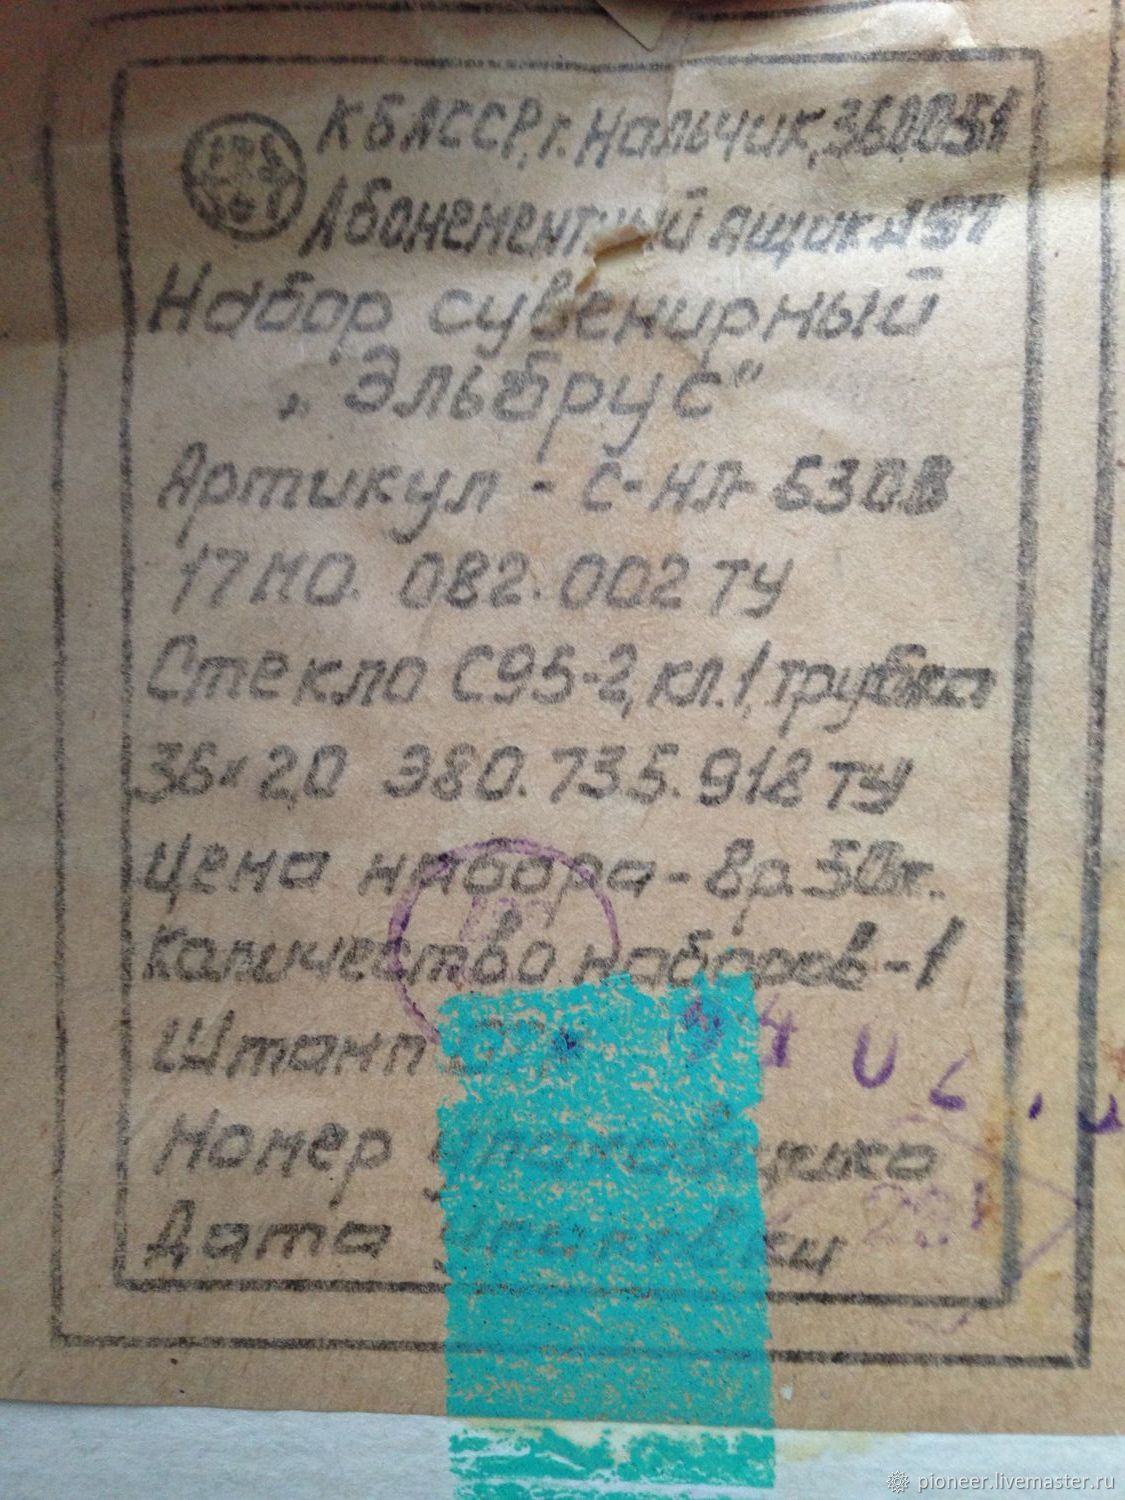 КБАССР, г. Нальчик, 360051
Абонементный ящик
Набор сувенирный
„Эльбрус"
Артикул - С-НЛ-
17 МО. 082.002 ТУ
Стекло С95-2, кл.1, трубка
36х2,0 Э80.735.918 ТУ
Цена набора - 8р.50к.
Количество наборов - 1
Штамп
Номер
Дата
pioneer.livemaster.ru